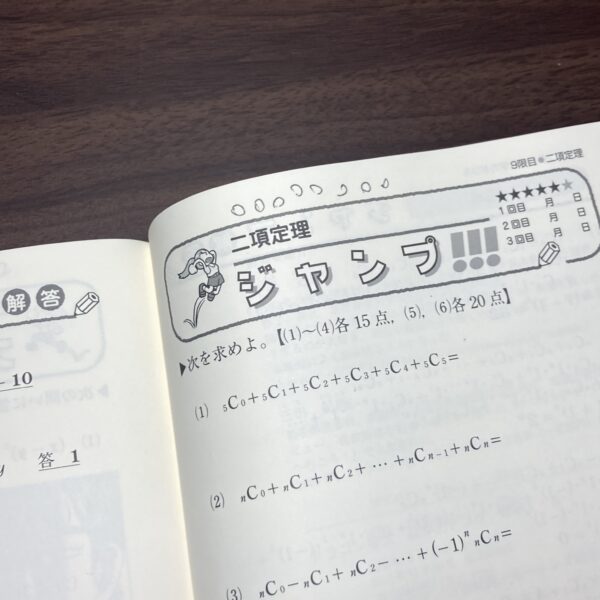 解答
-10
y 答 1
9限目●二項定理
二項定理
ジャンプ!!!
★★★★★★
1回目 月 日
2回目 月 日
3回目 月 日
▶次を求めよ。【(1)〜(4)各15点,(5),(6)各20点】
(1) ₅C₀+₅C₁+₅C₂+₅C₃+₅C₄+₅C₅=
(2) ₙC₀+ₙC₁+ₙC₂+…+ₙCₙ₋₁+ₙCₙ=
(3) ₙC₀−ₙC₁+ₙC₂−…+(−1)ⁿ ₙCₙ=